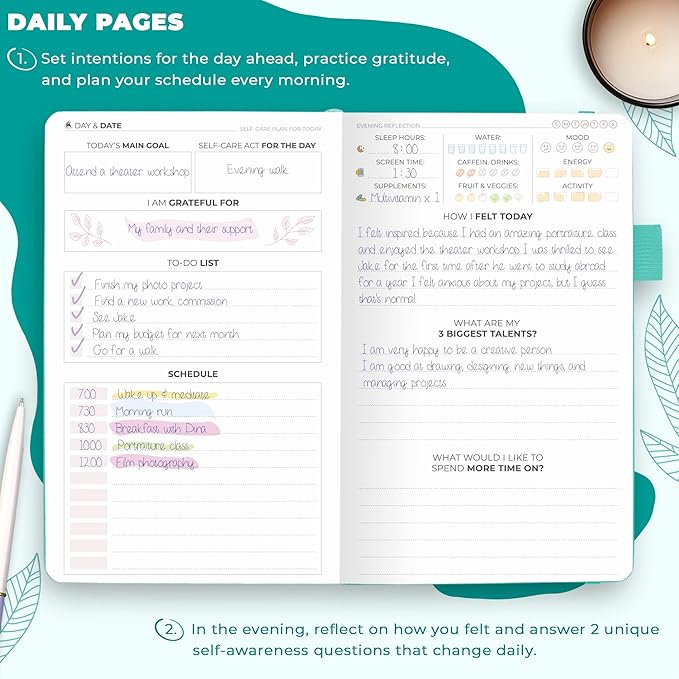 DAILY PAGES
1. Set intentions for the day ahead, practice gratitude,
and plan your schedule every morning.
DAY & DATE
SELF-CARE PLAN FOR TODAY
TODAY'S MAIN GOAL
Attend a theater workshop
SELF-CARE ACT FOR THE DAY
Evening walk
I AM GRATEFUL FOR
My family and their support
TO-DO LIST
Finish my photo project
Find a new work commission
See Jake
Plan my budget for next month
Go for a walk
SCHEDULE
7:00 Wake up & meditate
7:30 Morning run
8:30 Breakfast with Dina
10:00 Portraiture class
12:00 Film photography
EVENING REFLECTION
S M T W T F S
SLEEP HOURS:
8:00
SCREEN TIME:
1:30
SUPPLEMENTS:
Multivitamin x 1
WATER:
CAFFEIN. DRINKS:
FRUIT & VEGGIES:
MOOD
ENERGY
ACTIVITY
HOW I FELT TODAY
I felt inspired because I had an amazing portraiture class
and enjoyed the theater workshop. I was thrilled to see
Jake for the first time after he went to study abroad
for a year. I felt anxious about my project, but I guess
that's normal
WHAT ARE MY
3 BIGGEST TALENTS?
I am very happy to be a creative person.
I am good at drawing, designing new things, and
managing projects.
WHAT WOULD I LIKE TO
SPEND MORE TIME ON?
2. In the evening, reflect on how you felt and answer 2 unique
self-awareness questions that change daily.